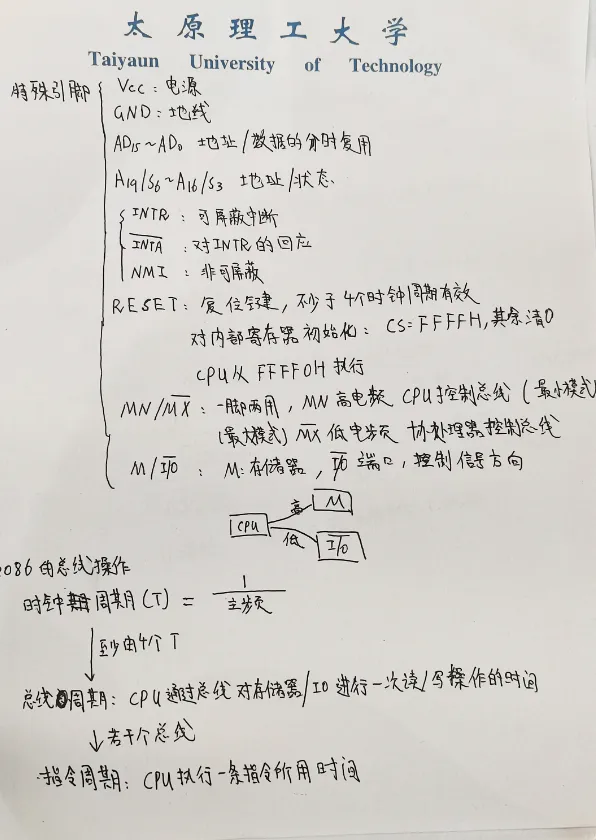 太原理工大学
Taiyaun University of Technology
特殊引脚
Vcc：电源
GND：地线
AD15~AD0 地址/数据的分时复用
A19/S6~A16/S3 地址/状态
INTR：可屏蔽中断
INTA：对INTR的回应
NMI：非可屏蔽
RESET：复位键，不少于4个时钟周期有效
对内部寄存器初始化：CS=FFFFH，其余清0
CPU从FFFF0H执行
MN/MX：一脚两用，MN高电频 CPU控制总线（最小模式）
（最大模式）MX低电频 协处理器控制总线
M/IO：M：存储器，IO端口，控制信号方向
CPU 高 M
低 I/O
8086的总线操作
时钟周期（T）= 1
主频
至少由4个T
总线周期：CPU通过总线对存储器/IO进行一次读/写操作的时间
若干个总线
指令周期：CPU执行一条指令所用时间